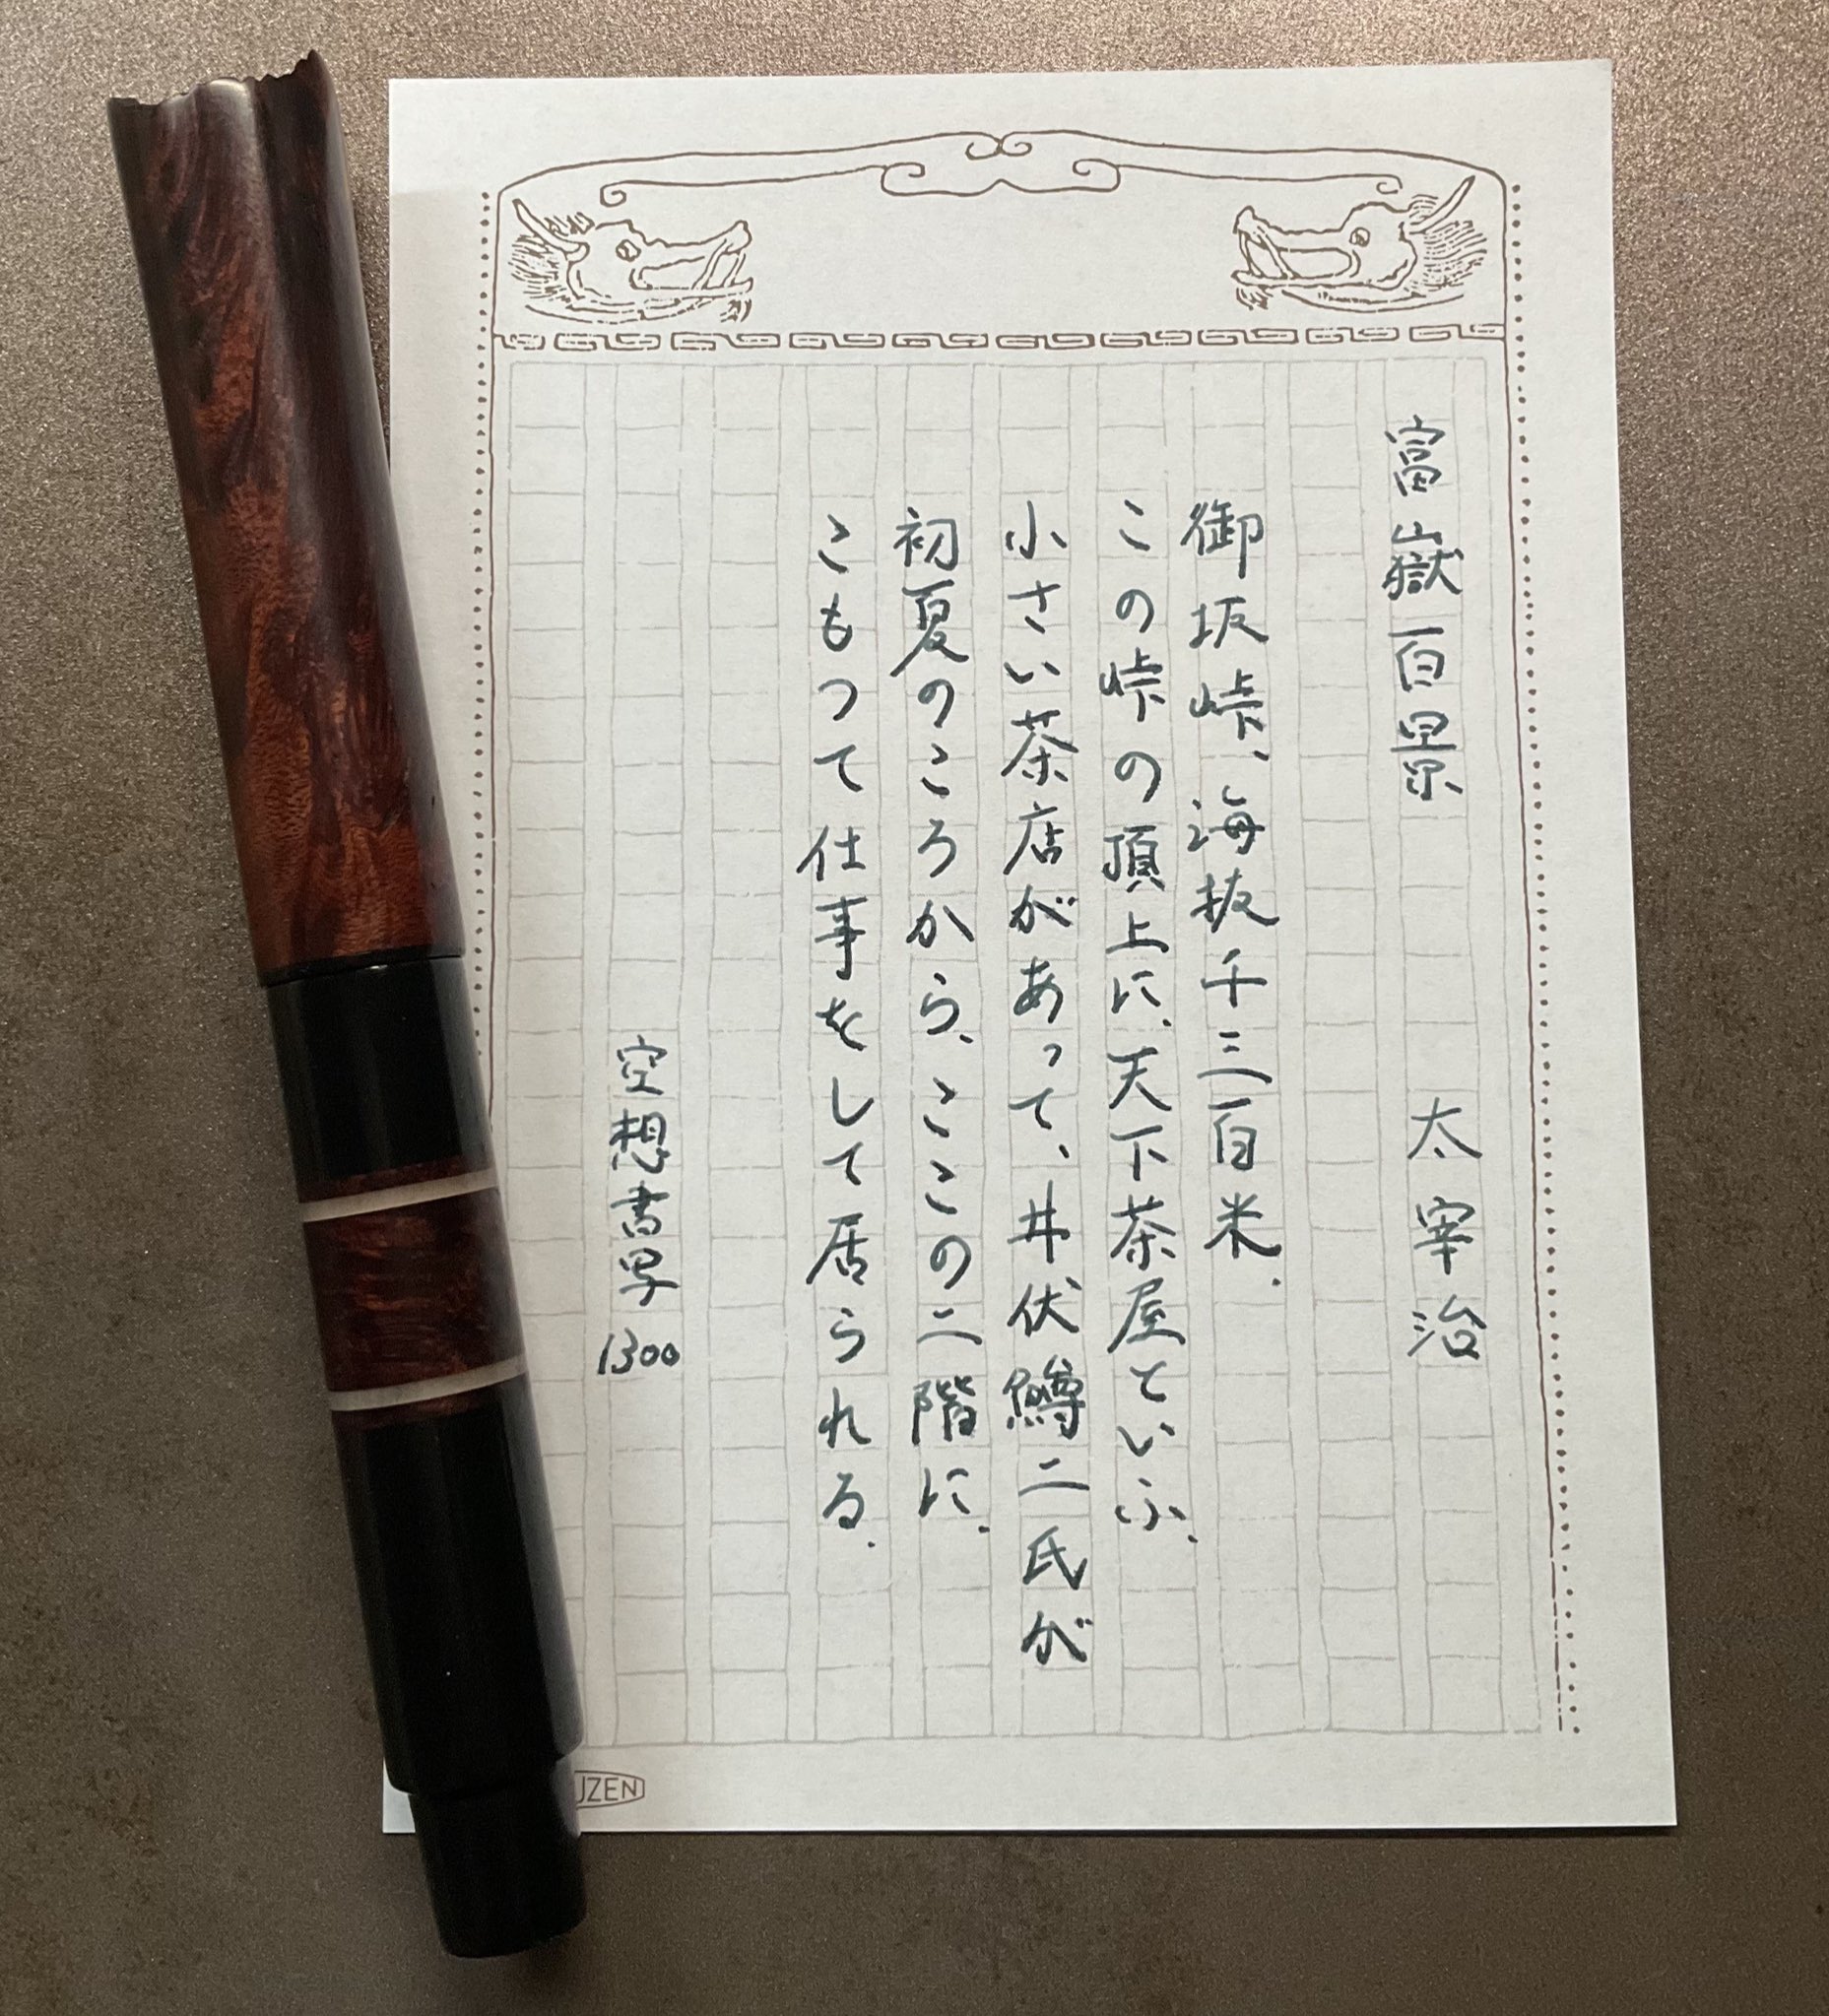 富嶽百景 太宰治
御坂峠、海抜千三百米。
この峠の頂上に、天下茶屋といふ、
小さい茶店があって、井伏鱒二氏が
初夏のころから、ここの二階に、
こもつて仕事をして居られる。
空想書写 1300
JZEN